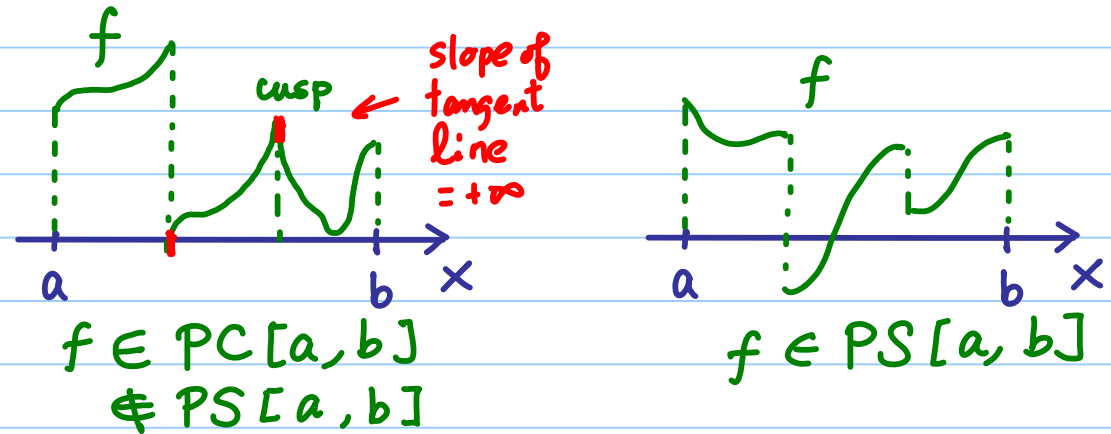 f
cusp
slope of
tangent
line
= +∞
a
b
x
f ∈ PC[a, b]
∉ PS[a, b]
f
a
b
x
f ∈ PS[a, b]